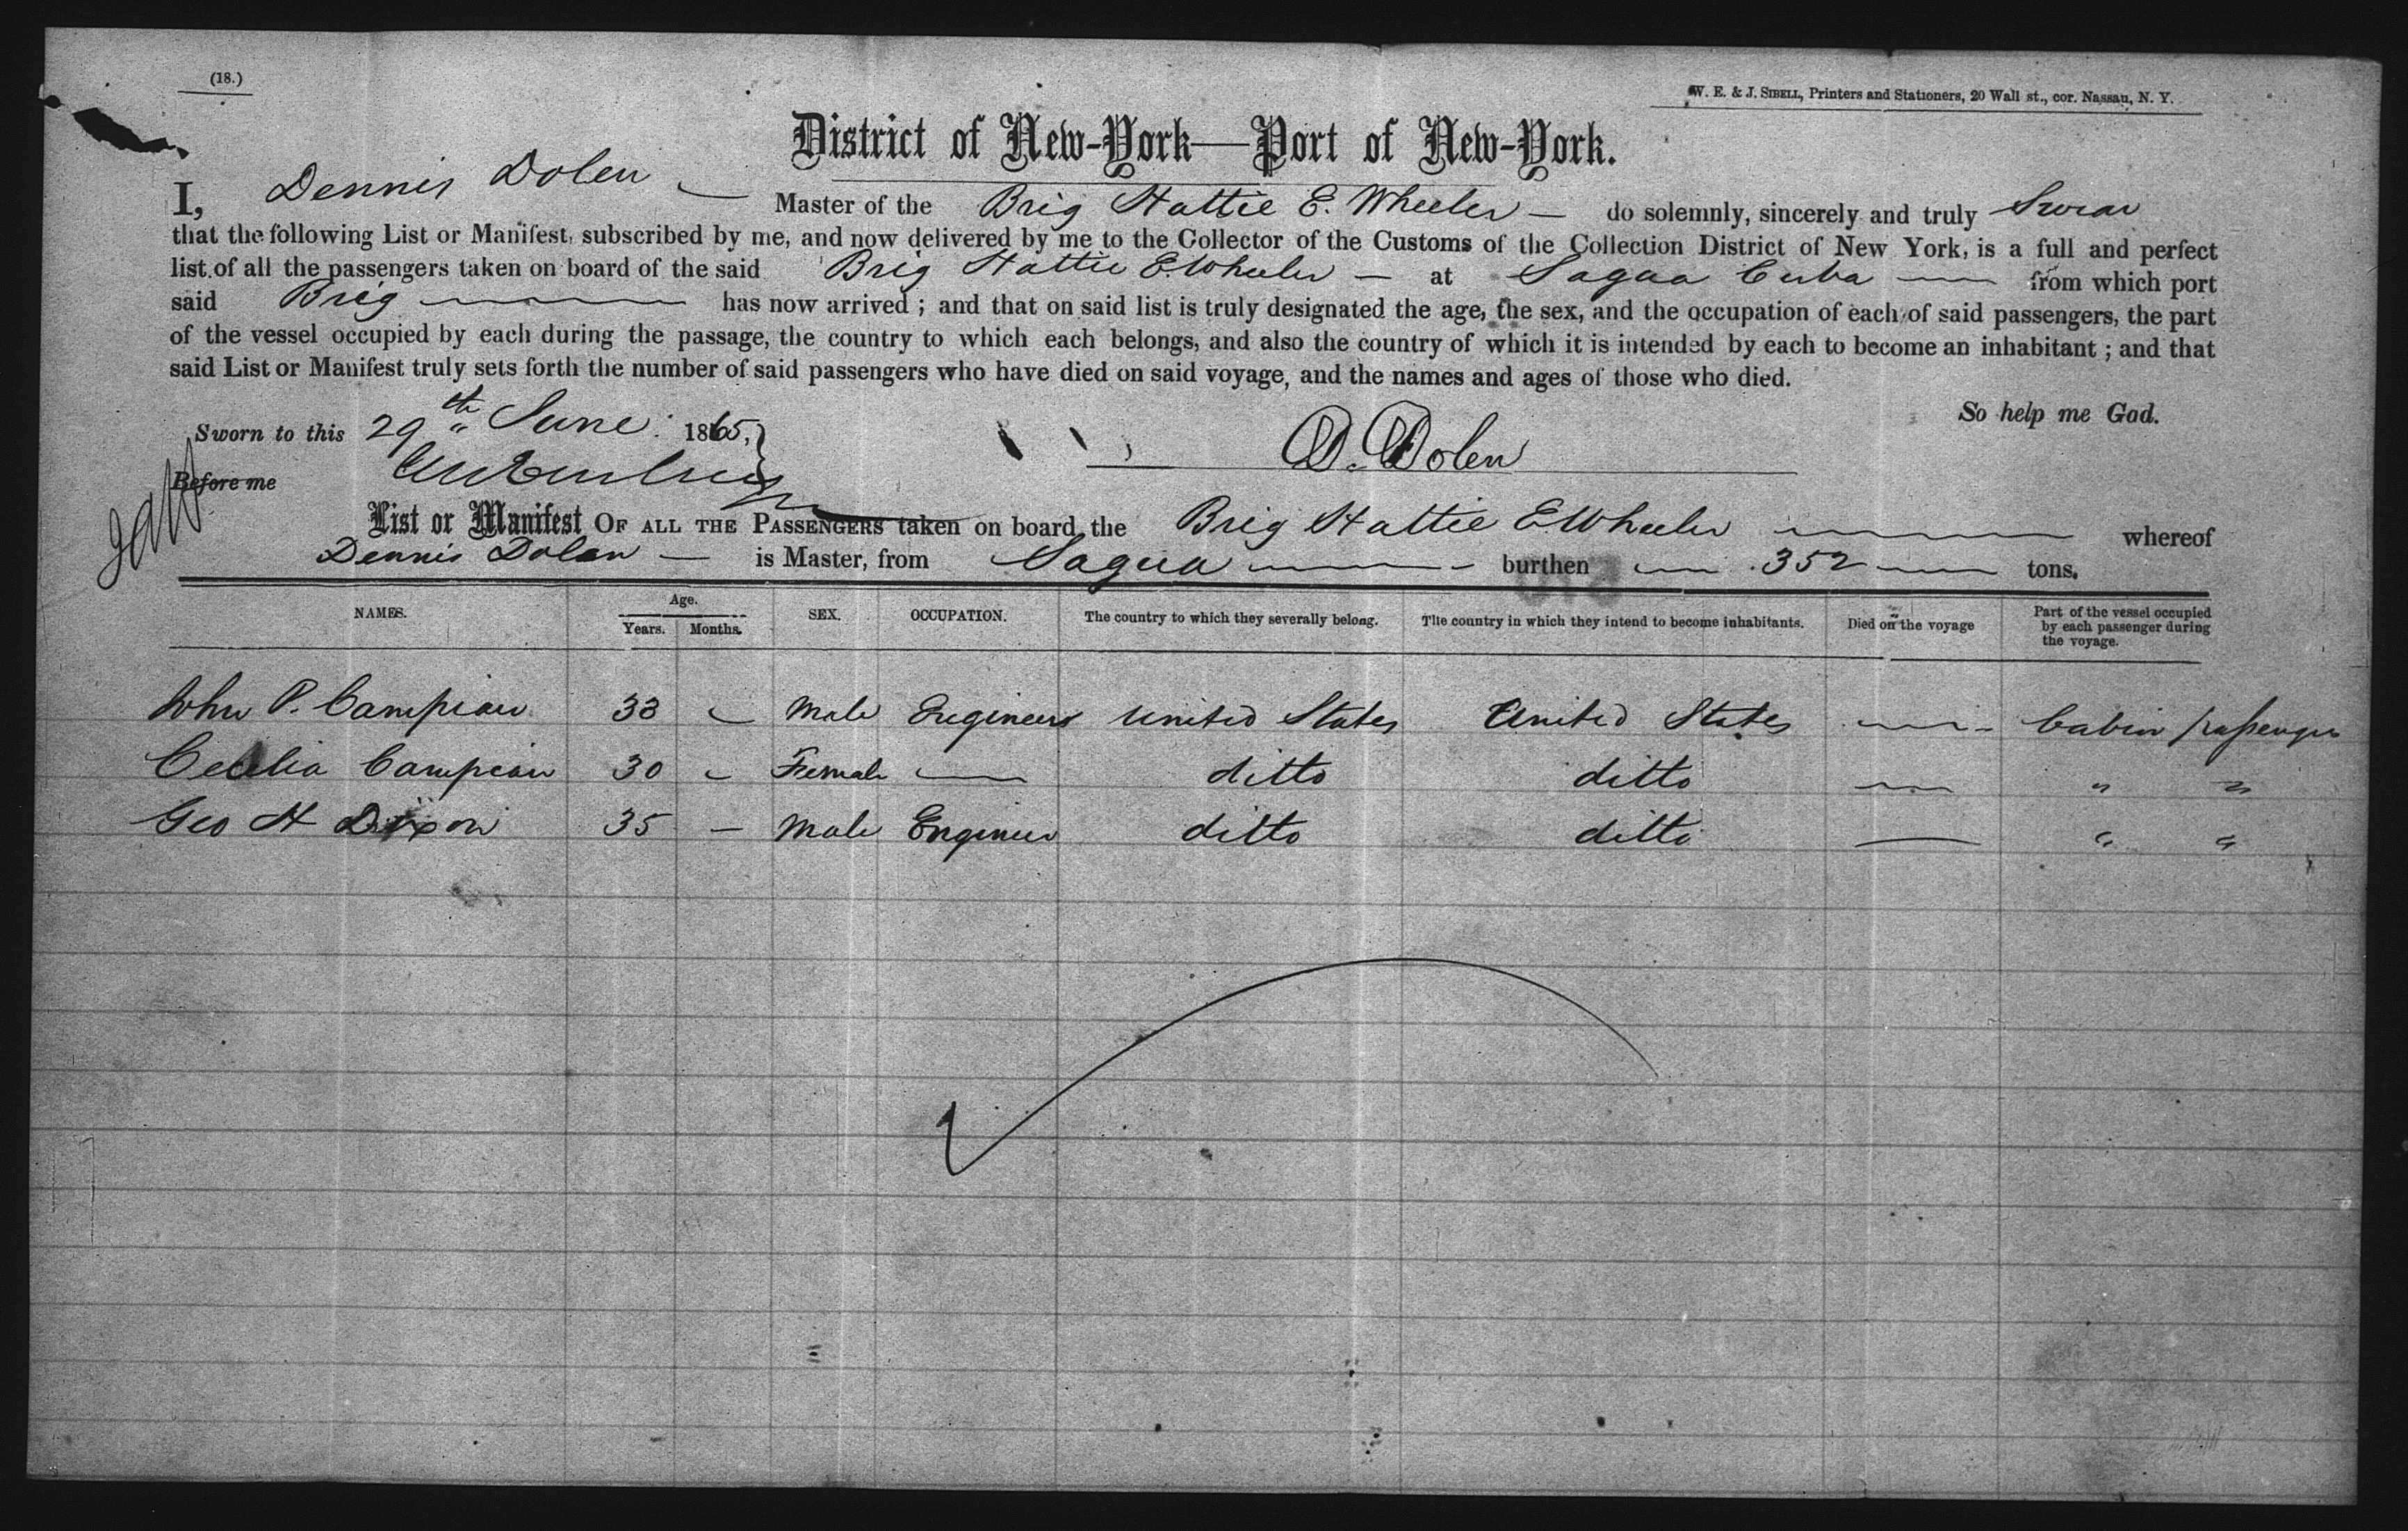 (18.)
W. E. & J. SIBELL, Printers and Stationers, 20 Wall st., cor. Nassau, N. Y.
District of New-York—Port of New-York.
I, Dennis Dolen — Master of the Brig Hattie E. Wheeler — do solemnly, sincerely and truly Swear
that the following List or Manifest, subscribed by me, and now delivered by me to the Collector of the Customs of the Collection District of New York, is a full and perfect
list of all the passengers taken on board of the said Brig Hattie E Wheeler — at Sagua Cuba — from which port
said Brig — has now arrived ; and that on said list is truly designated the age, the sex, and the occupation of each of said passengers, the part
of the vessel occupied by each during the passage, the country to which each belongs, and also the country of which it is intended by each to become an inhabitant ; and that
said List or Manifest truly sets forth the number of said passengers who have died on said voyage, and the names and ages of those who died.
So help me God.
Sworn to this 29th June 1865,
D. Dolen
Before me
List or Manifest OF ALL THE PASSENGERS taken on board the Brig Hattie E Wheeler — whereof
Dennis Dolen — is Master, from Sagua — burthen — 352 — tons.
NAMES. Age. Years. Months. SEX. OCCUPATION. The country to which they severally belong. The country in which they intend to become inhabitants. Died on the voyage Part of the vessel occupied by each passenger during the voyage.
John P. Campian 33 — Male Engineer United States United States — Cabin passenger
Cecelia Campian 30 — Female — ditto ditto — " "
Geo H Dixon 35 — Male Engineer ditto ditto — " "